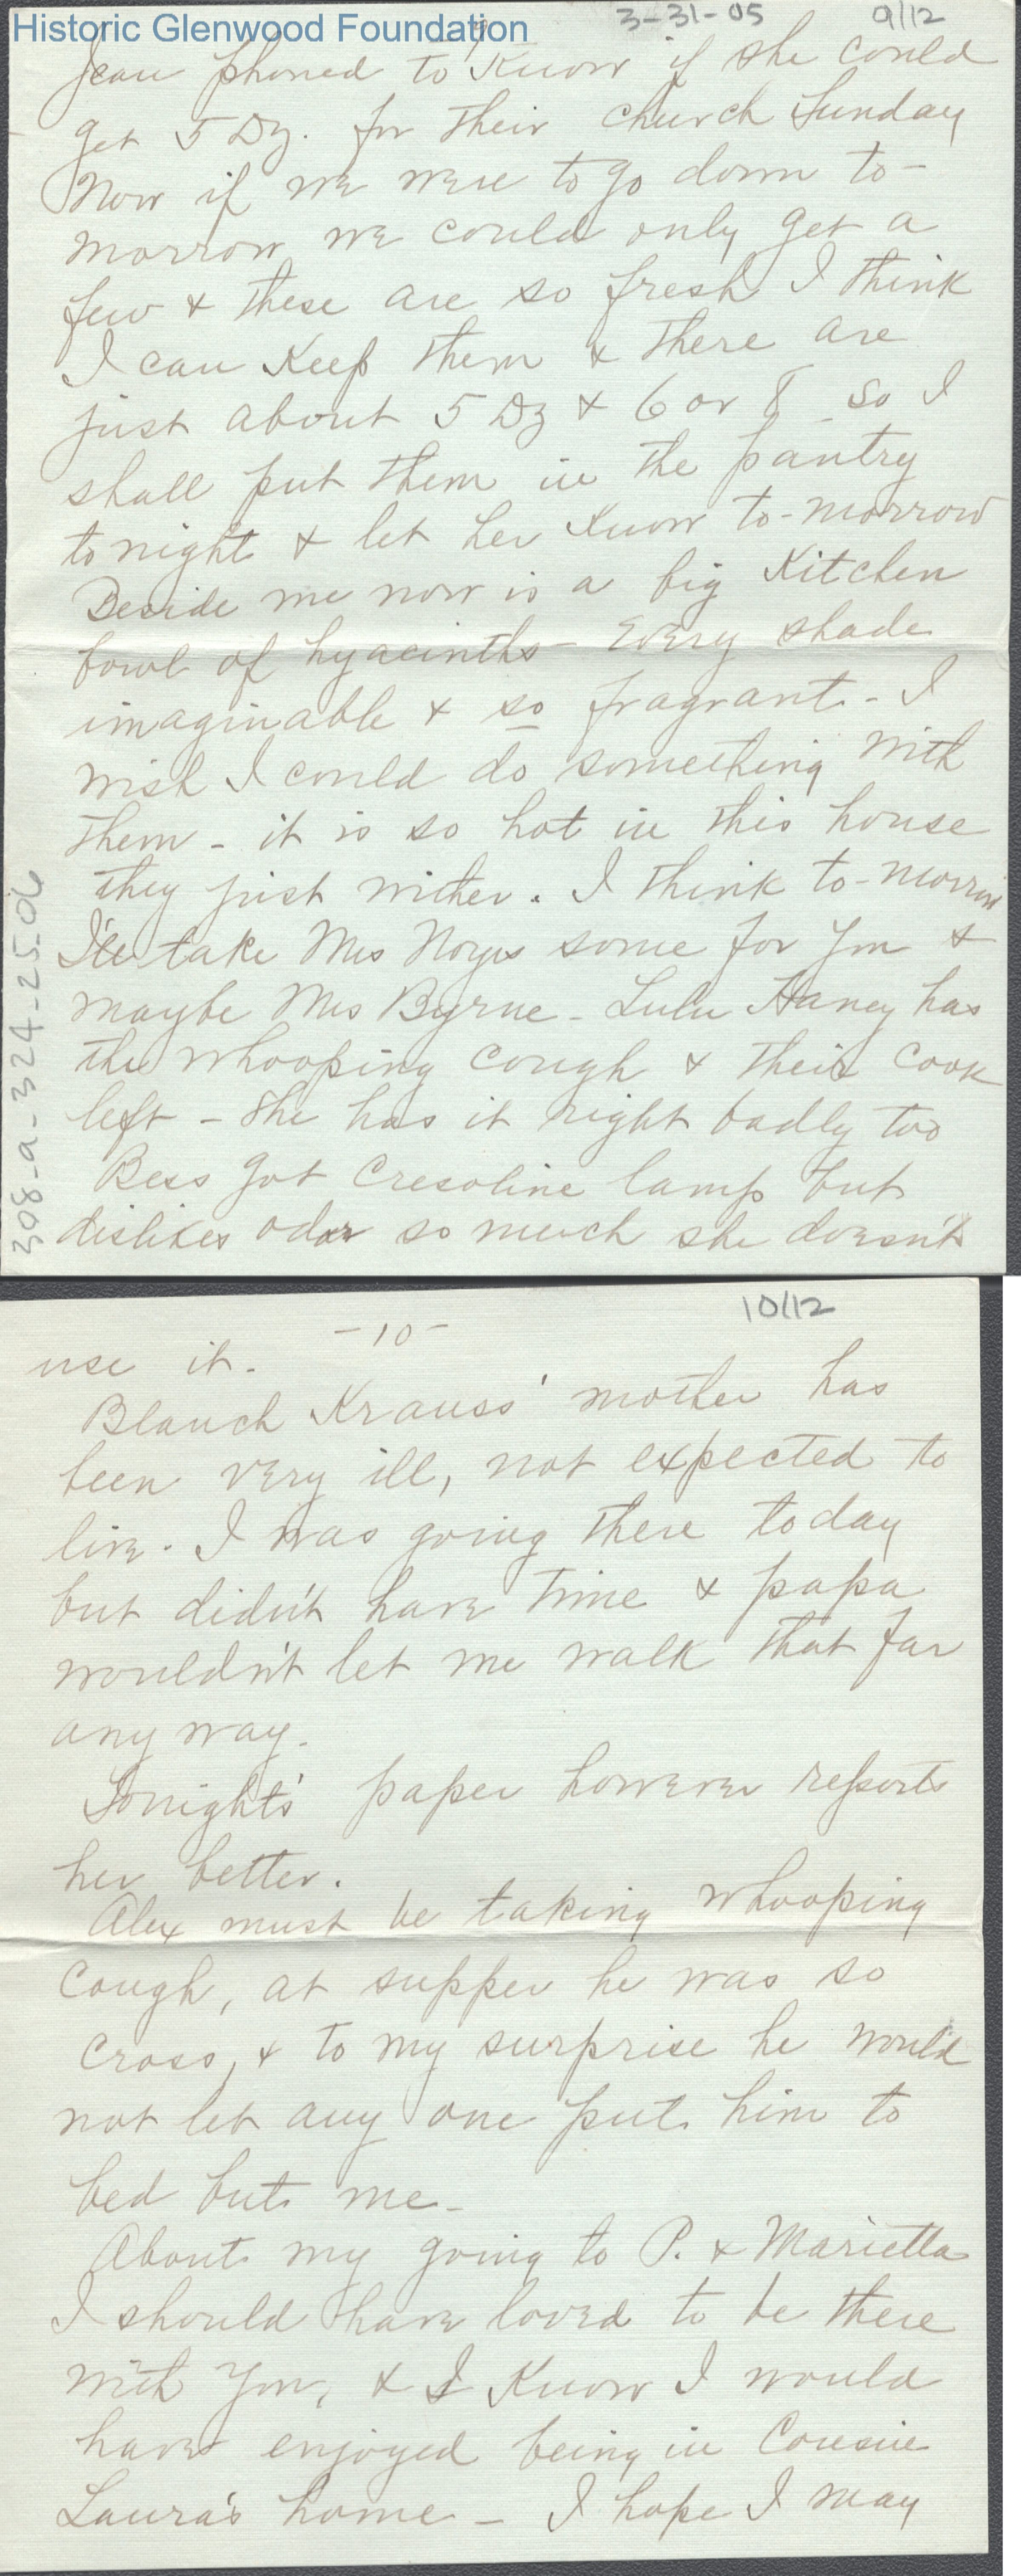 Historic Glenwood Foundation
3-31-05
9/12
Jean phoned to know if she could
get 5 Dz. for their church Sunday
Now if we were to go down to-
morrow we could only get a
few & these are so fresh I think
I can keep them & there are
just about 5 Dz & 6 or 8 so I
shall put them in the pantry
to night & let her know to-morrow
Beside me now is a big kitchen
bowl of hyacinths - Every shade
imaginable & so fragrant - I
wish I could do something with
them - it is so hot in this house
they just wither. I think to-morrow
I'll take Mrs Noyes some for you &
maybe Mrs Byrne - Lulu Haney has
the whooping cough & their cook
left - She has it right badly too
Bess got Cresoline lamp but
dislikes odor so much she doesn't
308-a-324-25-06
10/12
-10-
use it.
Blanch Krauss' mother has
been very ill, not expected to
live. I was going there today
but didn't have time & papa
wouldn't let me walk that far
any way.
Tonight's paper however reports
her better.
Alex must be taking whooping
cough, at supper he was so
cross, & to my surprise he would
not let any one put him to
bed but me -
About my going to P. & Marietta
I should have loved to be there
with you, & I know I would
have enjoyed being in Cousin
Laura's home - I hope I may